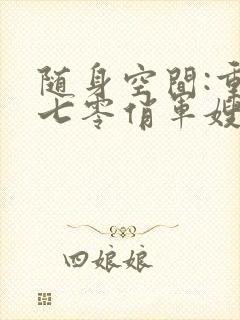 随身空间:重
七零俏军嫂
四娘娘